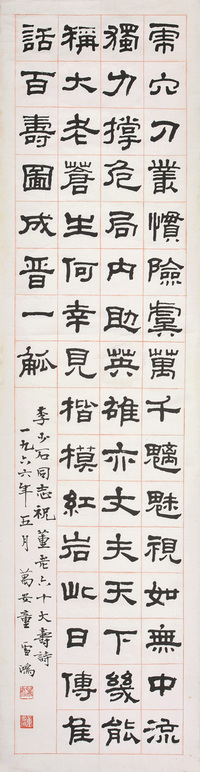 虎穴刀叢慣險虞萬千魑魅視如無中流
獨力撐危局內助英雄亦丈夫天下幾能
稱大老蒼生何幸見楷模紅岩此日傳佳
話百壽圖成晉一觚
李少石同志祝董老六十大壽詩
一九六六年五月 萬安童雪鴻